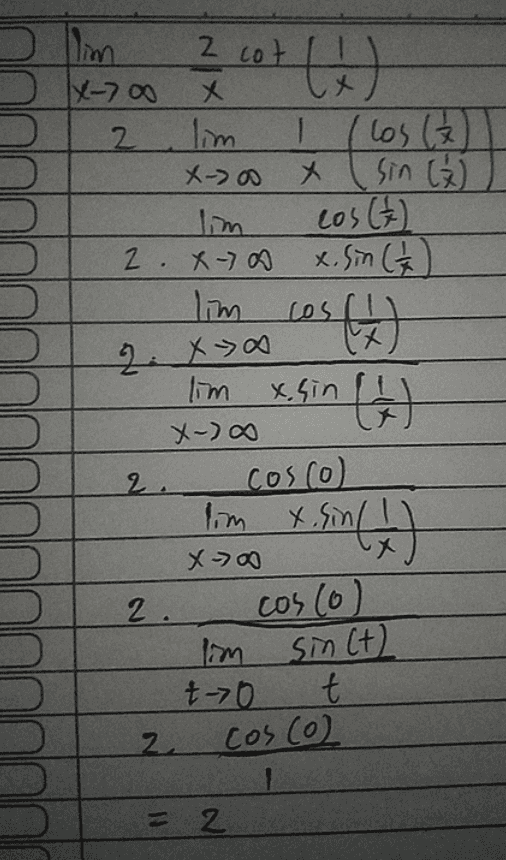 lim 2/x cot (1/x)
x→∞
2 . lim 1/x (cos (1/x) / sin (1/x))
x→∞
2 . lim cos (1/x) / x. sin (1/x)
x→∞
2. lim cos (1/x)
x→∞
lim x. sin (1/x)
x→∞
2. cos (0)
lim x. sin (1/x)
x→∞
2. cos (0)
lim sin (t) / t
t→0
2. cos (0)
1
= 2